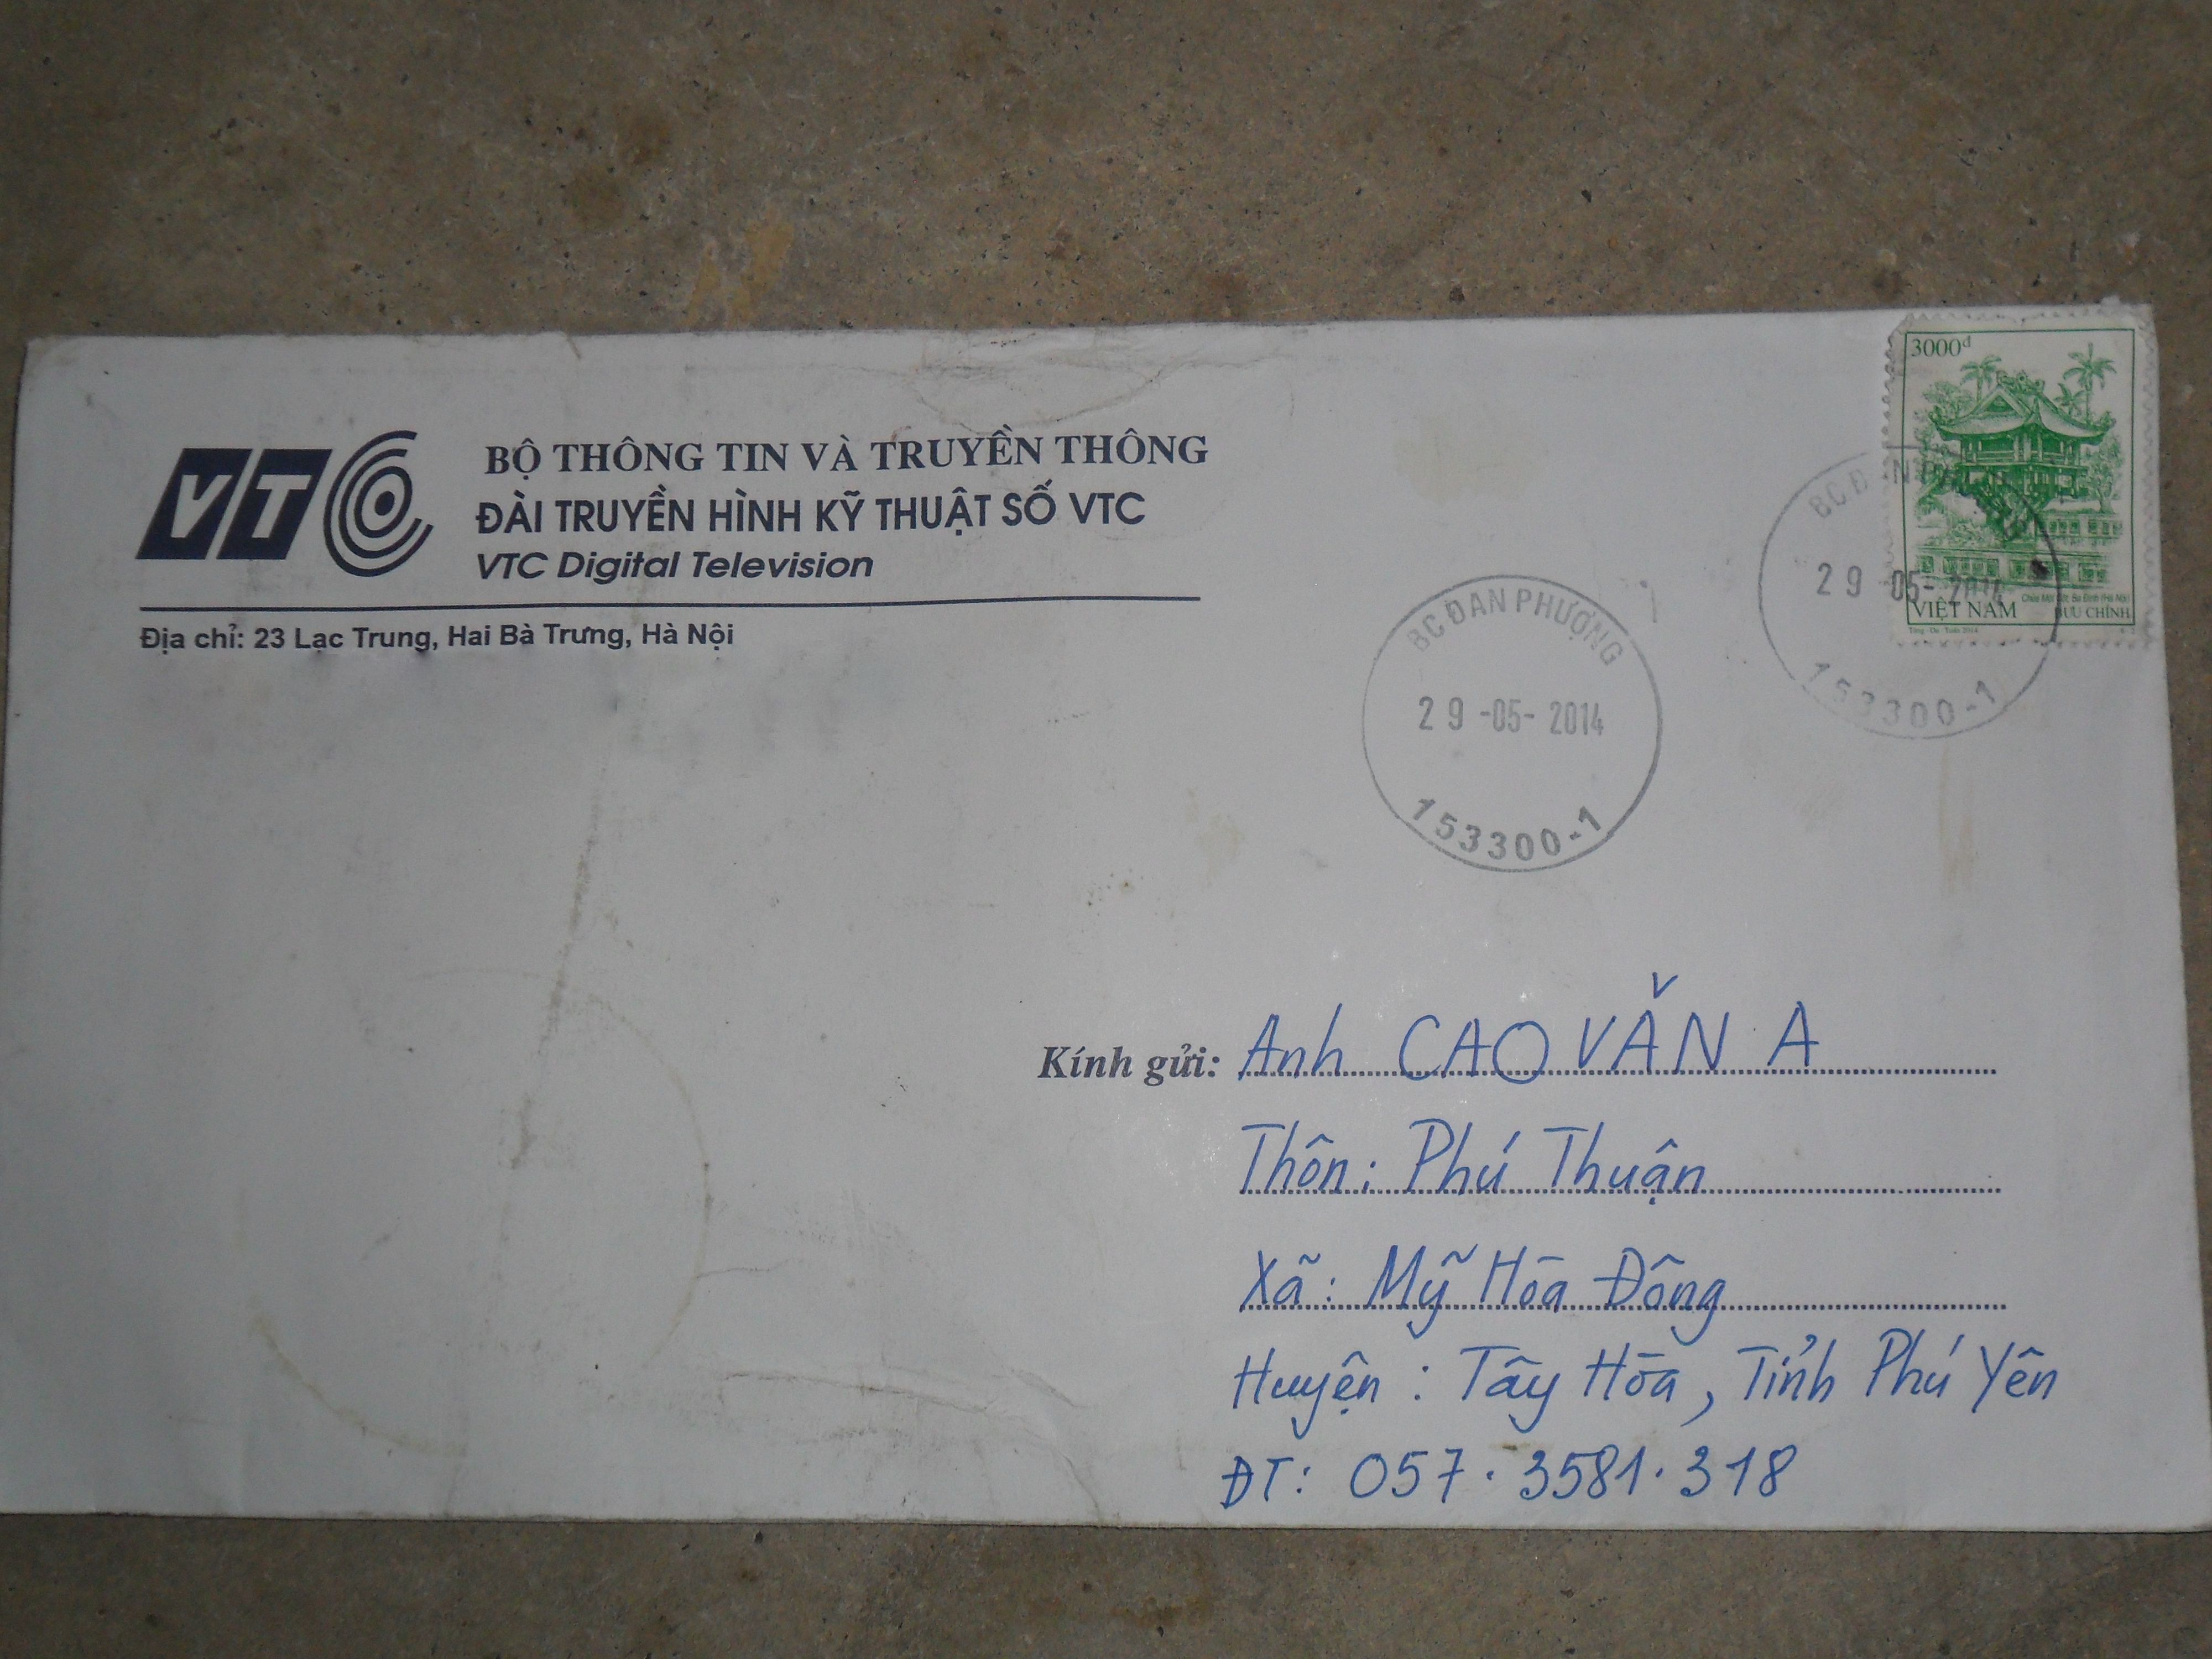 VTC
BỘ THÔNG TIN VÀ TRUYỀN THÔNG
ĐÀI TRUYỀN HÌNH KỸ THUẬT SỐ VTC
VTC Digital Television
Địa chỉ: 23 Lạc Trung, Hai Bà Trưng, Hà Nội
3000đ
VIỆT NAM
BƯU CHÍNH
29-05-2014
153300-1
BC ĐAN PHƯỢNG
29-05-2014
153300-1
Kính gửi: Anh CAO VĂN A
Thôn: Phú Thuận
Xã: Mỹ Hòa Đông
Huyện: Tây Hòa, Tỉnh Phú Yên
ĐT: 057.3581.318